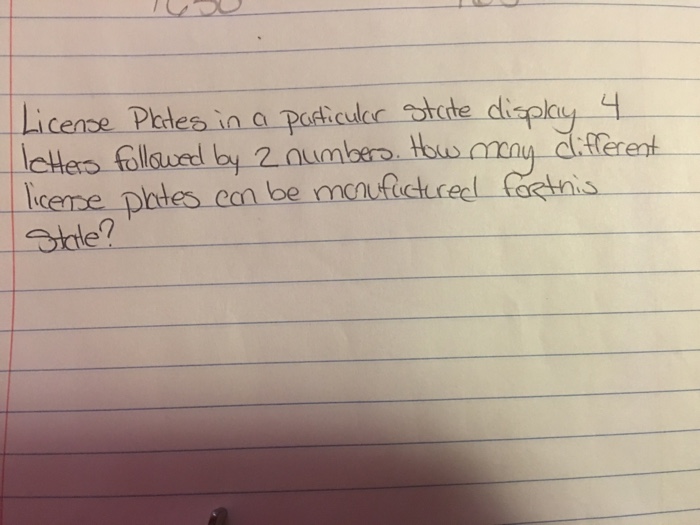 License Plates in a particular state display 4
letters followed by 2 numbers. How many different
license plates can be manufactured for this
State?